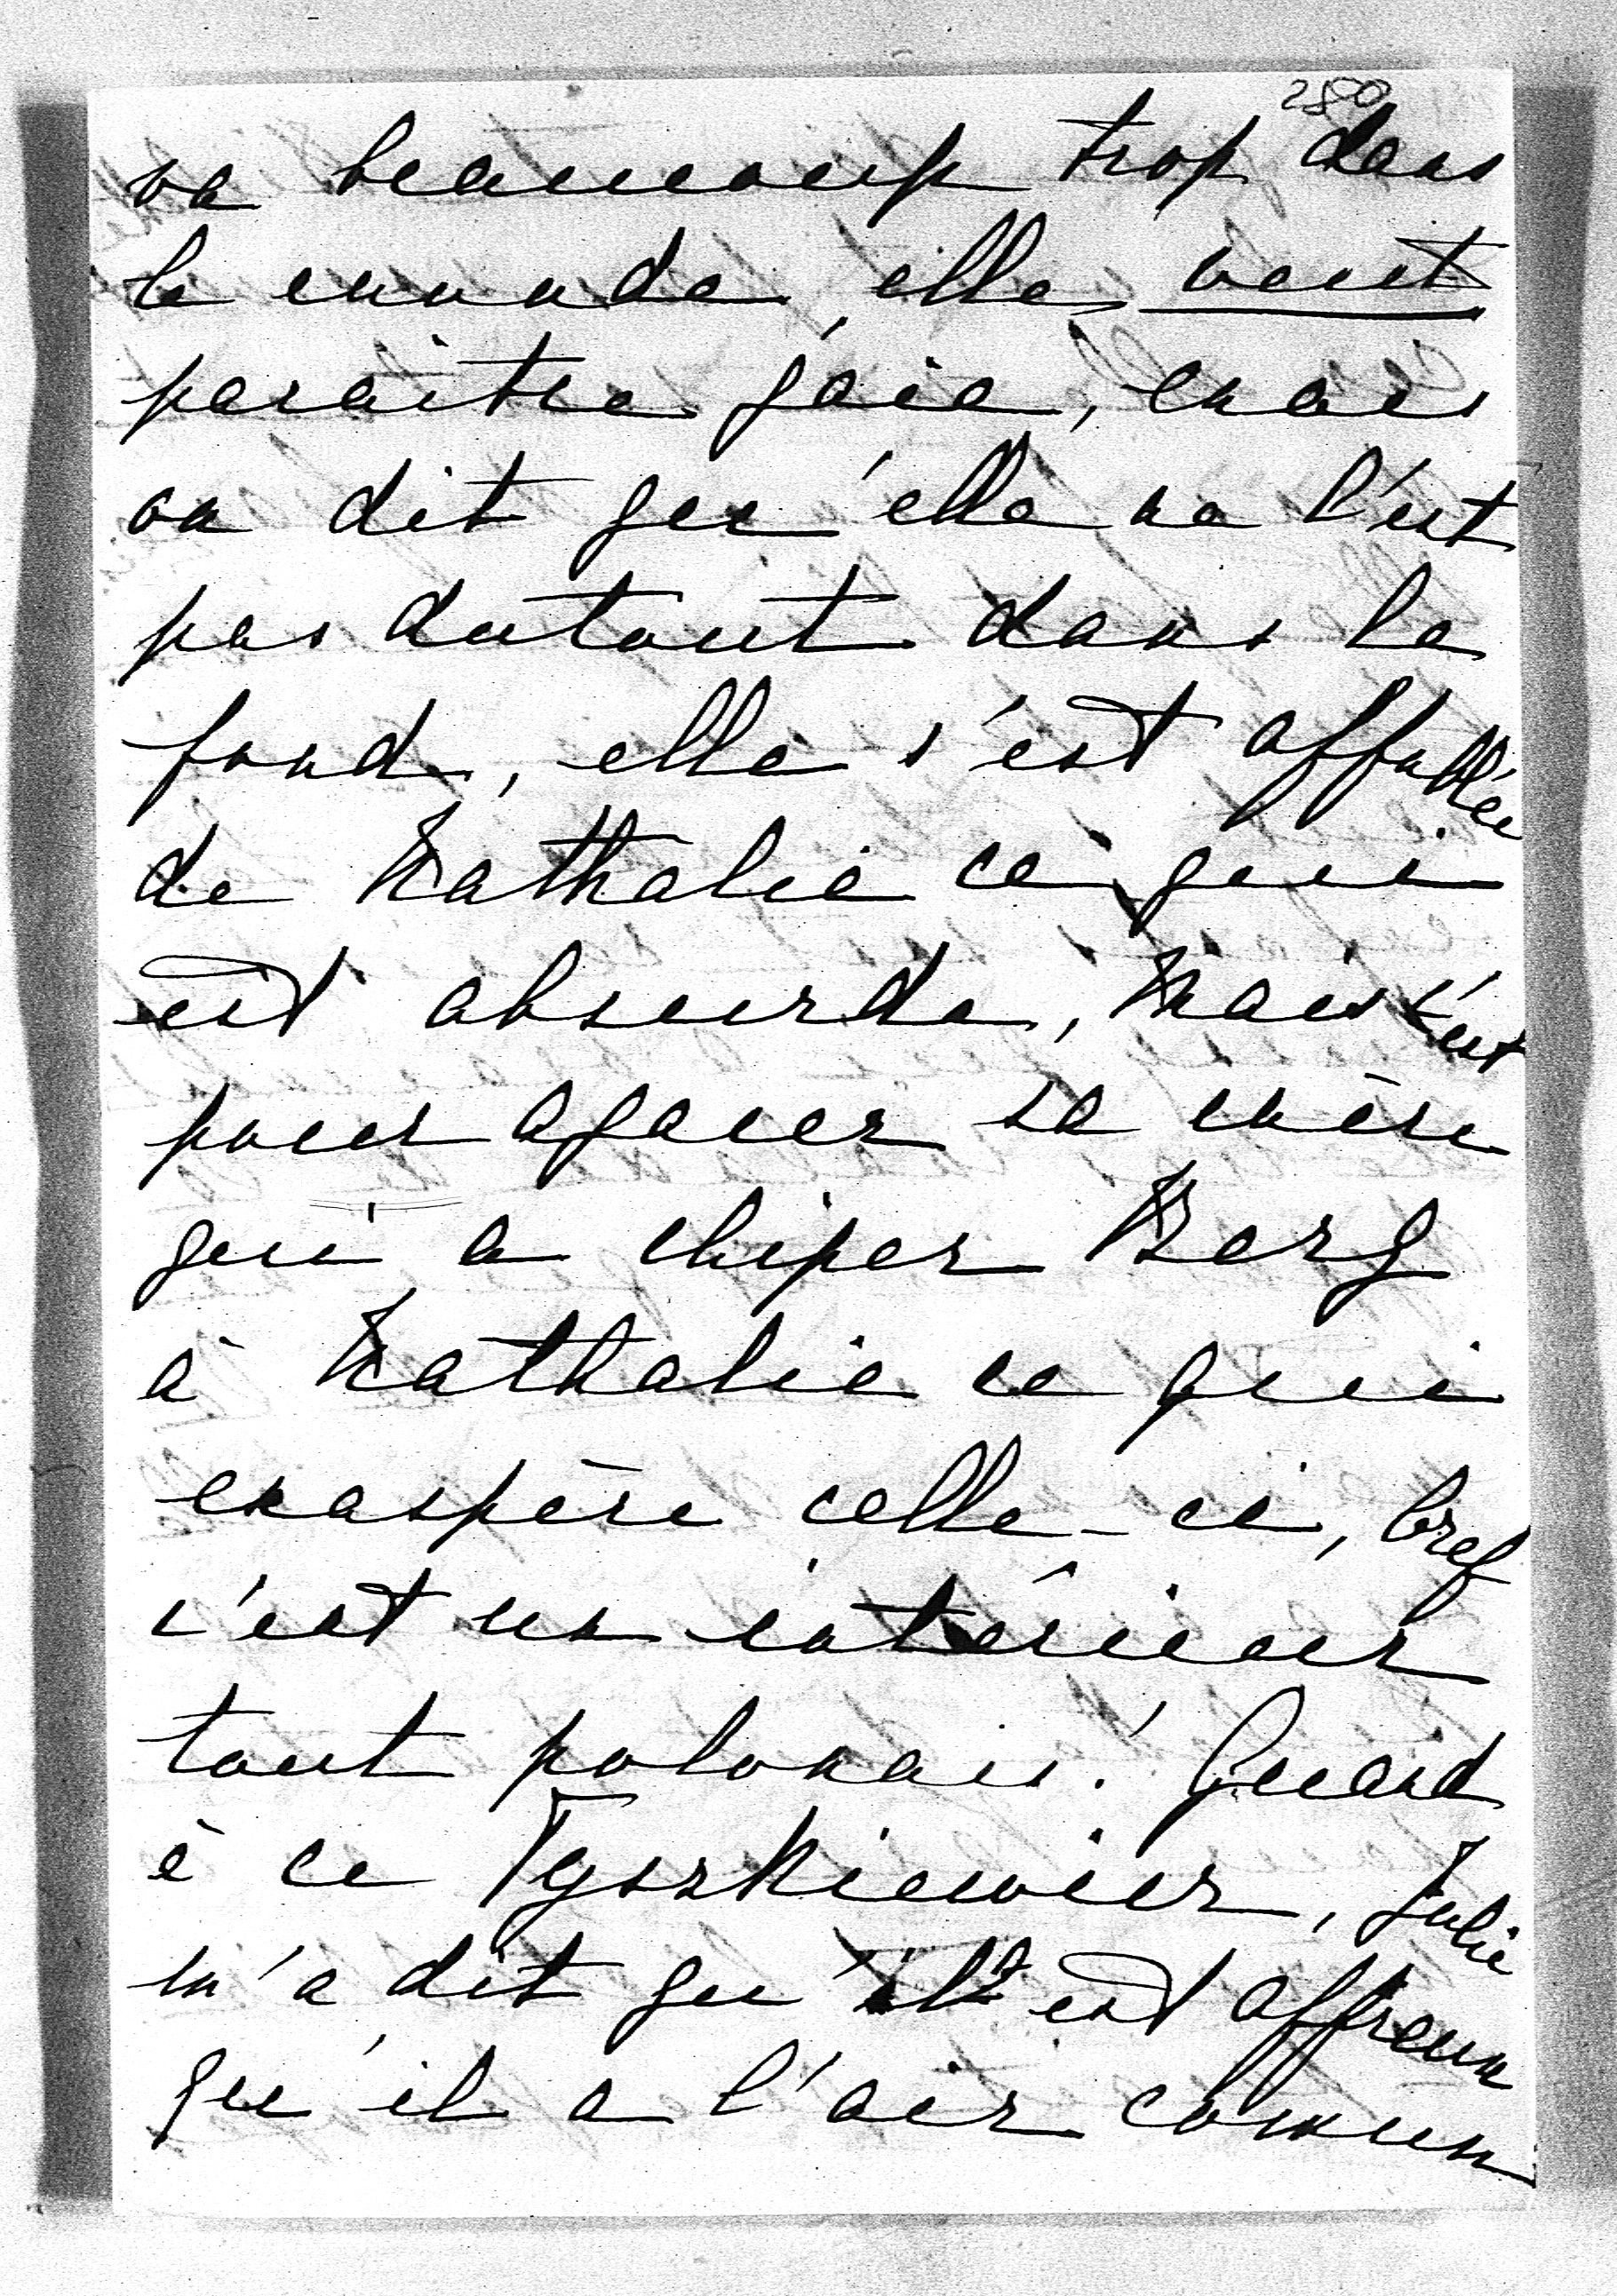 280
va beaucoup trop dans
le monde, elle veut
paraître gaie, mais
on dit qu'elle ne l'est
pas dutout dans le
fond, elle s'est affublée
de Nathalie ce qui
est absurde, Mais c'est
pour agacer sa mère
qui a chiper Berg
à Nathalie ce qui
exaspère celle-ci, bref
c'est un intérieur
tout polonais! Quand
à ce Tyszkiewicz, Julie
m'a dit qu'il est affreux
qu'il a l'air comun